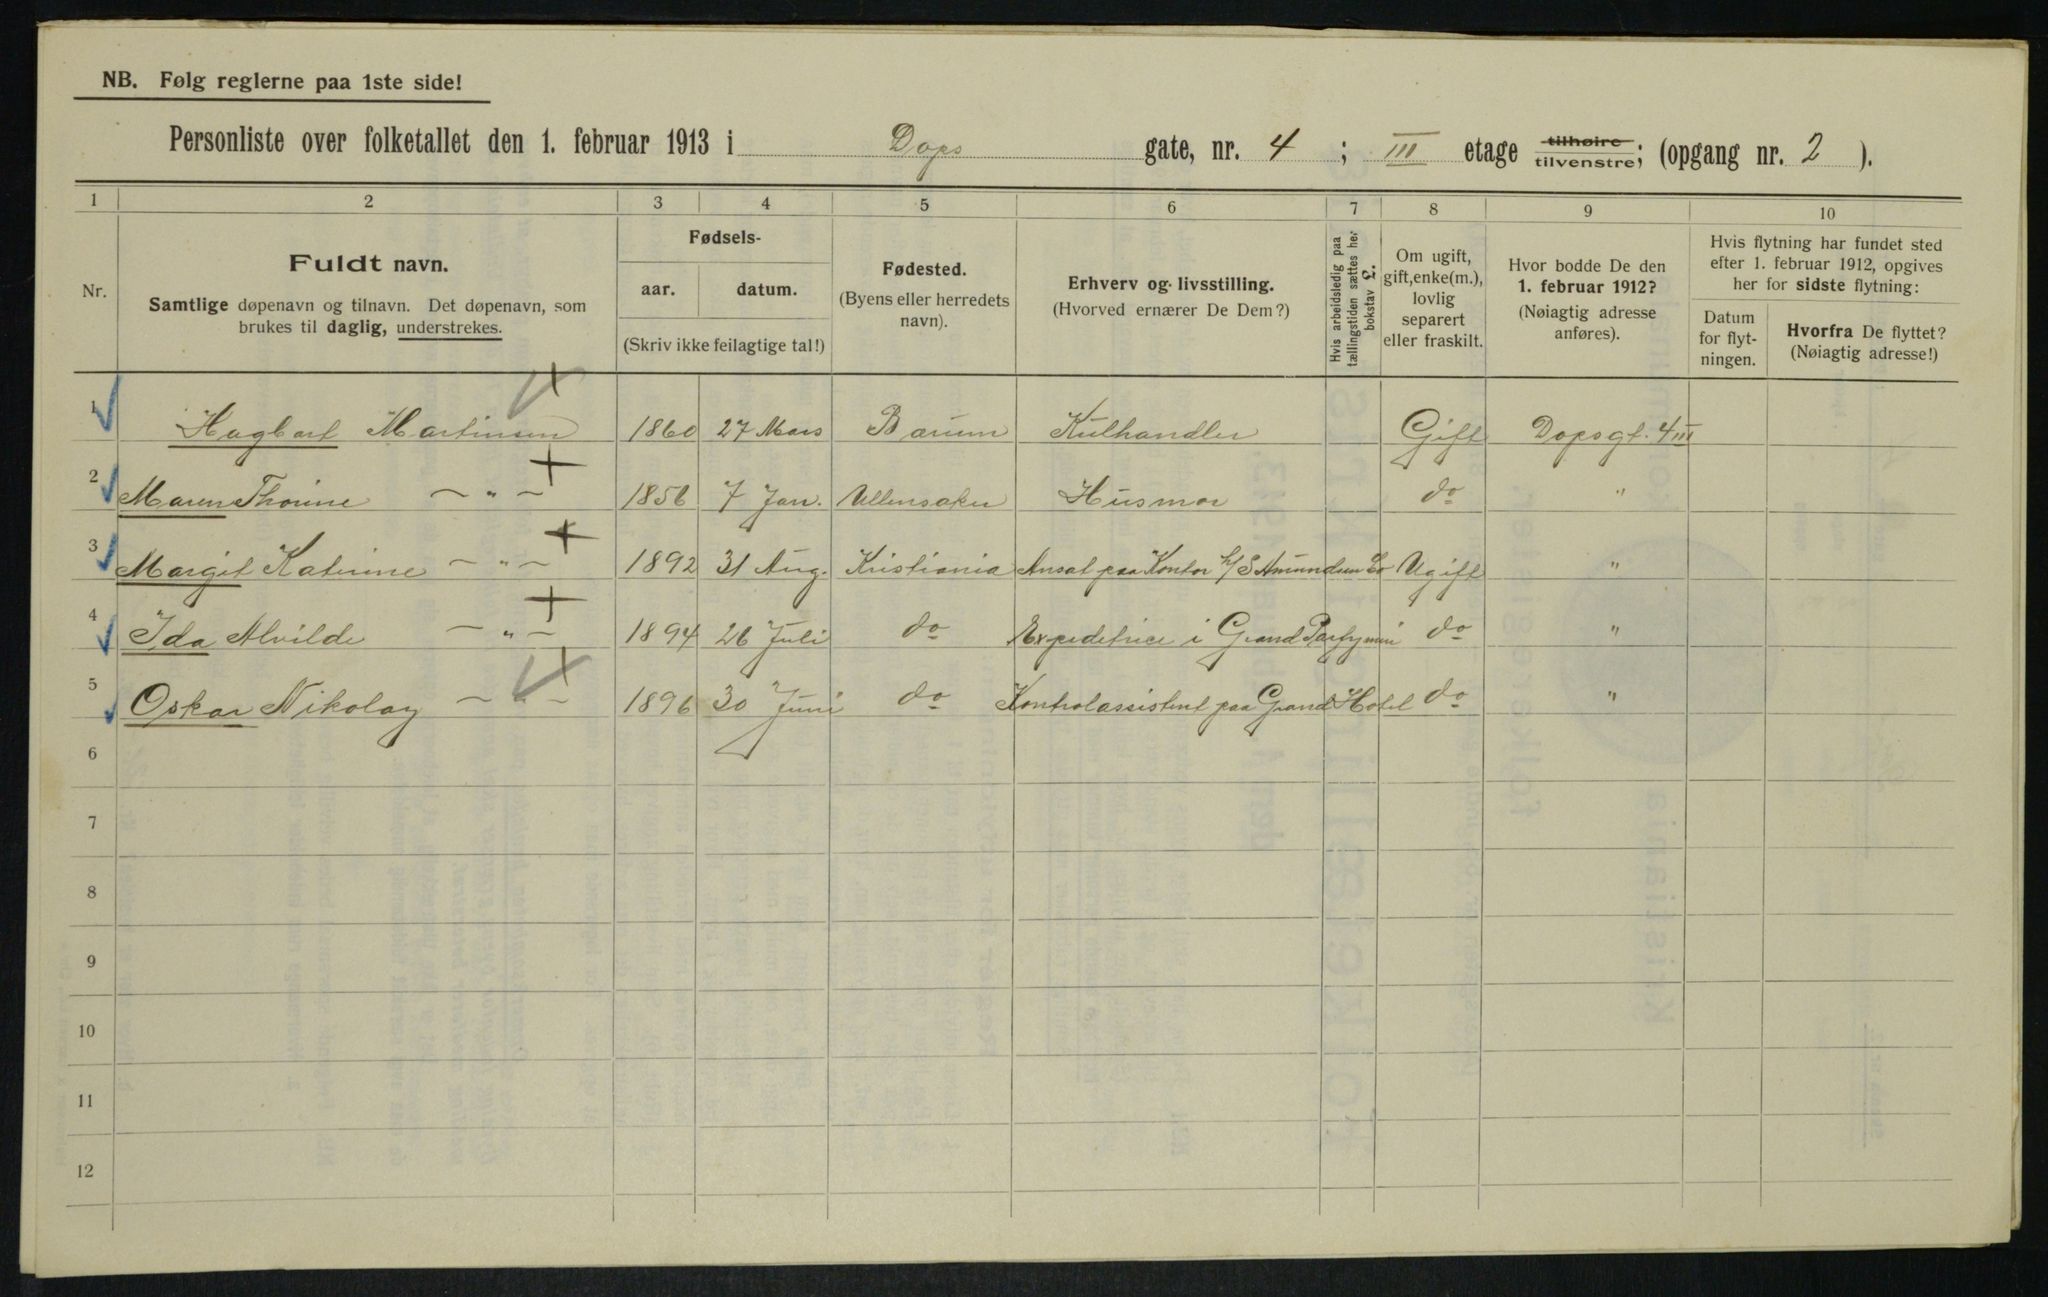 NB. Følg reglerne paa 1ste side!
Personliste over folketallet den 1. februar 1913 i Dops gate, nr. 4 ; III etage tilhøire tilvenstre; (opgang nr. 2 ).
1 2 3 4 5 6 7 8 9 10
Nr.
Fuldt navn.
Samtlige døpenavn og tilnavn. Det døpenavn, som
brukes til daglig, understrekes.
Fødsels-
aar. datum.
(Skriv ikke feilagtige tal!)
Fødested.
(Byens eller herredets
navn).
Erhverv og livsstilling.
(Hvorved ernærer De Dem?)
Hvis arbeidsledig paa
tællingstiden sættes her
bokstav L.
Om ugift,
gift, enke(m.),
lovlig
separert
eller fraskilt.
Hvor bodde De den
1. februar 1912?
(Nøiagtig adresse
anføres).
Hvis flytning har fundet sted
efter 1. februar 1912, opgives
her for sidste flytning:
Datum
for flyt-
ningen.
Hvorfra De flyttet?
(Nøiagtig adresse!)
1 Hagbart Martinsen 1860 27 Mars Bærum Kulhandler Gift Dopsgt. 4 III
2 Maren Thorine — " — 1856 7 Jan. Ullensaker Husmor do "
3 Margit Katrine — " — 1892 31 Aug. Kristiania Ansat paa Kontor h/S Amundsen Co Ugift "
4 Ida Alvilde — " — 1894 26 Juli do Expeditrice i Grand Parfymeri do "
5 Oskar Nikolay — " — 1896 30 Juni do Kontrolassistent paa Grand Hotel do "
6
7
8
9
10
11
12